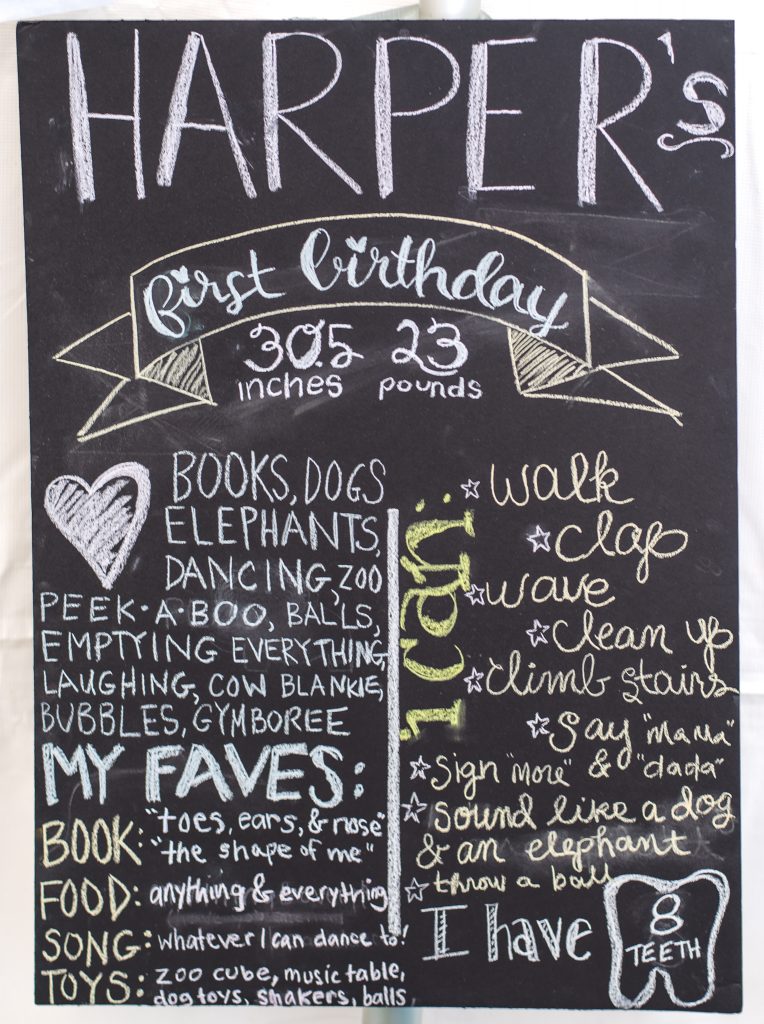 HARPER's
first birthday
30.5 23
inches pounds
BOOKS, DOGS
ELEPHANTS,
DANCING, ZOO
PEEK·A·BOO, BALLS,
EMPTYING EVERYTHING,
LAUGHING, COW BLANKIE,
BUBBLES, GYMBOREE
MY FAVES:
BOOK: "toes, ears, & nose"
"the shape of me"
FOOD: anything & everything
SONG: whatever I can dance to!
TOYS: ZOO CUBE, MUSIC TABLE,
dog toys, shakers, balls
i can:
walk
clap
wave
clean up
climb stairs
say "mama"
& "dada"
sign "more"
sound like a dog
& an elephant
throw a ball
I have
8
TEETH